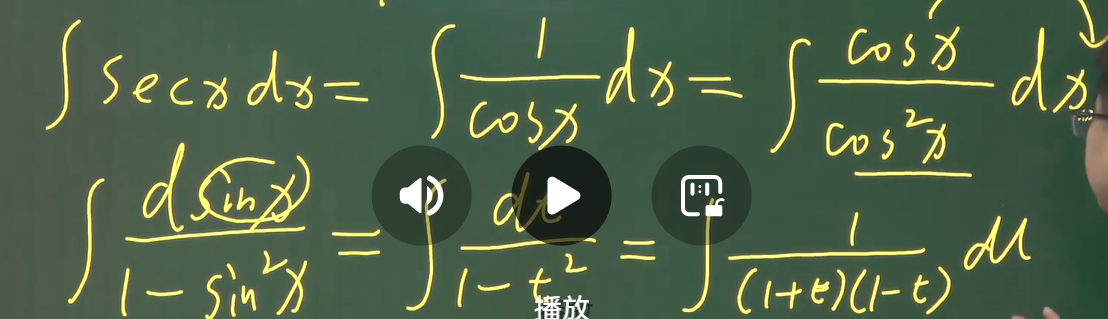 ∫ sec x dx = ∫ 1/cos x dx = ∫ cos x/cos²x dx
∫ d(sin x)/1 - sin²x = ∫ dt/1 - t² = ∫ 1/(1+t)(1-t) dt
播放